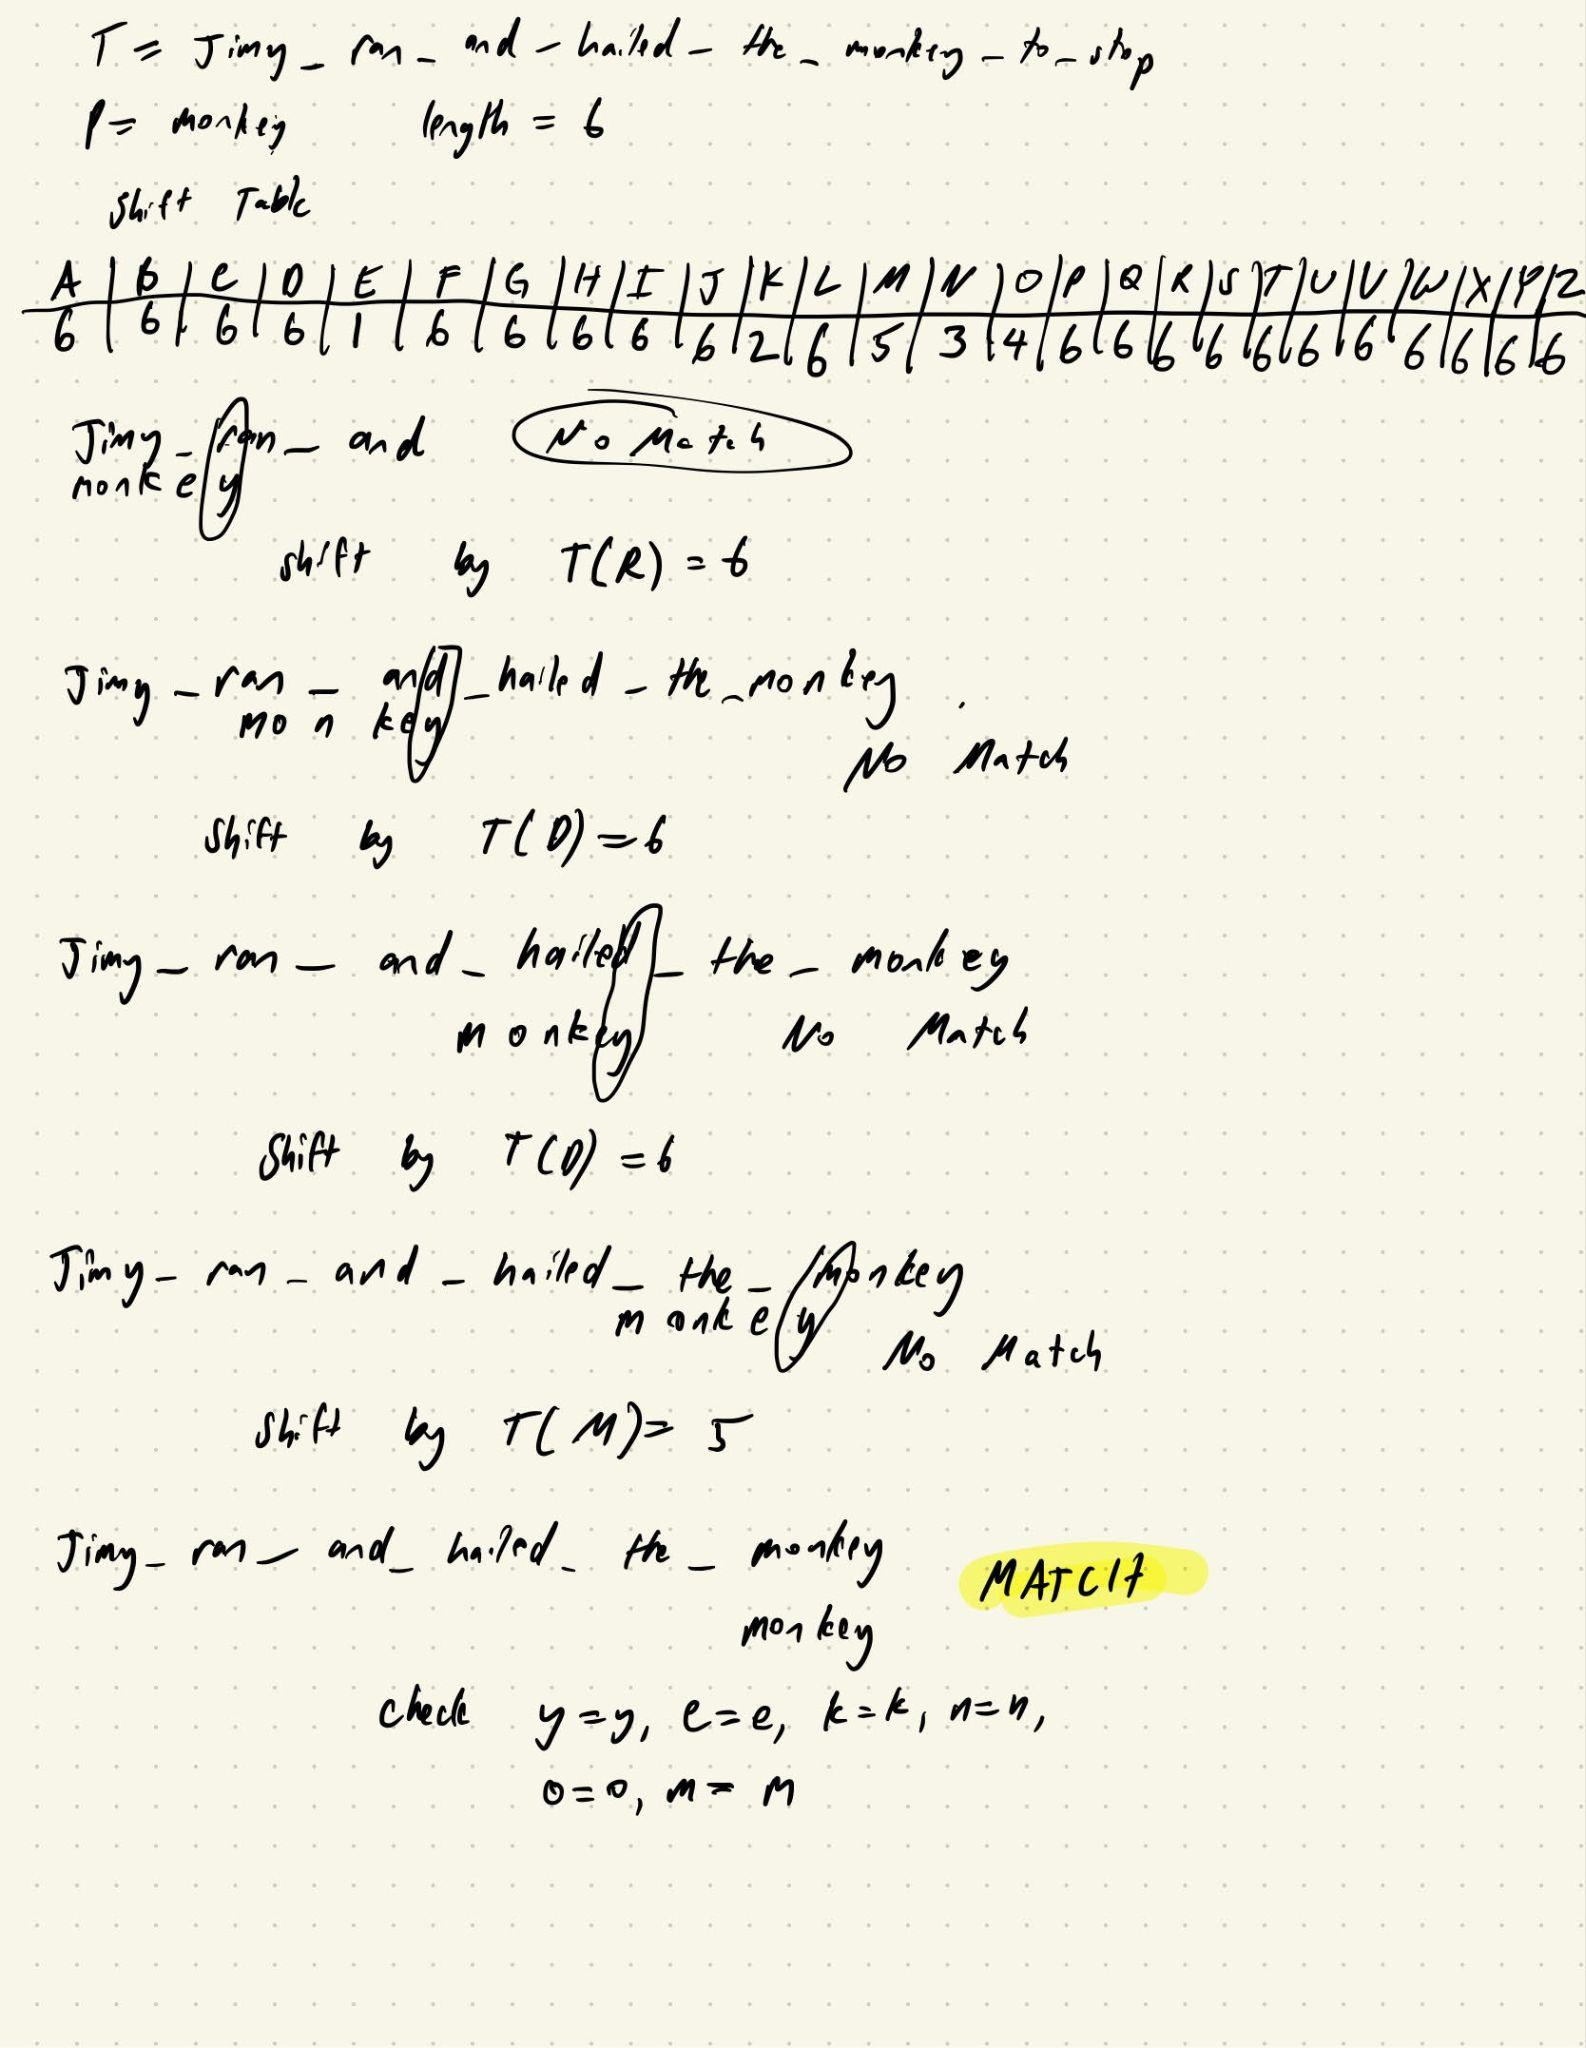 T = Jimy_ran_and_hailed_the_monkey_to_stop
P= monkey length = 6
Shift Table
A | B | C | D | E | F | G | H | I | J | K | L | M | N | O | P | Q | R | S | T | U | V | W | X | Y | Z
6 | 6 | 6 | 6 | 1 | 6 | 6 | 6 | 6 | 6 | 2 | 6 | 5 | 3 | 4 | 6 | 6 | 6 | 6 | 6 | 6 | 6 | 6 | 6 | 6 | 6
Jimy_ran_and No Match
monkey
shift by T(R) = 6
Jimy_ran_and_hailed_the_monkey
monkey
No Match
Shift by T(D) = 6
Jimy_ran_and_hailed_the_monkey
monkey No Match
Shift by T(D) = 6
Jimy_ran_and_hailed_the_monkey
monkey
No Match
Shift by T(M) = 5
Jimy_ran_and_hailed_the_monkey MATCH
monkey
check y=y, e=e, k=k, n=n,
o=o, m=m